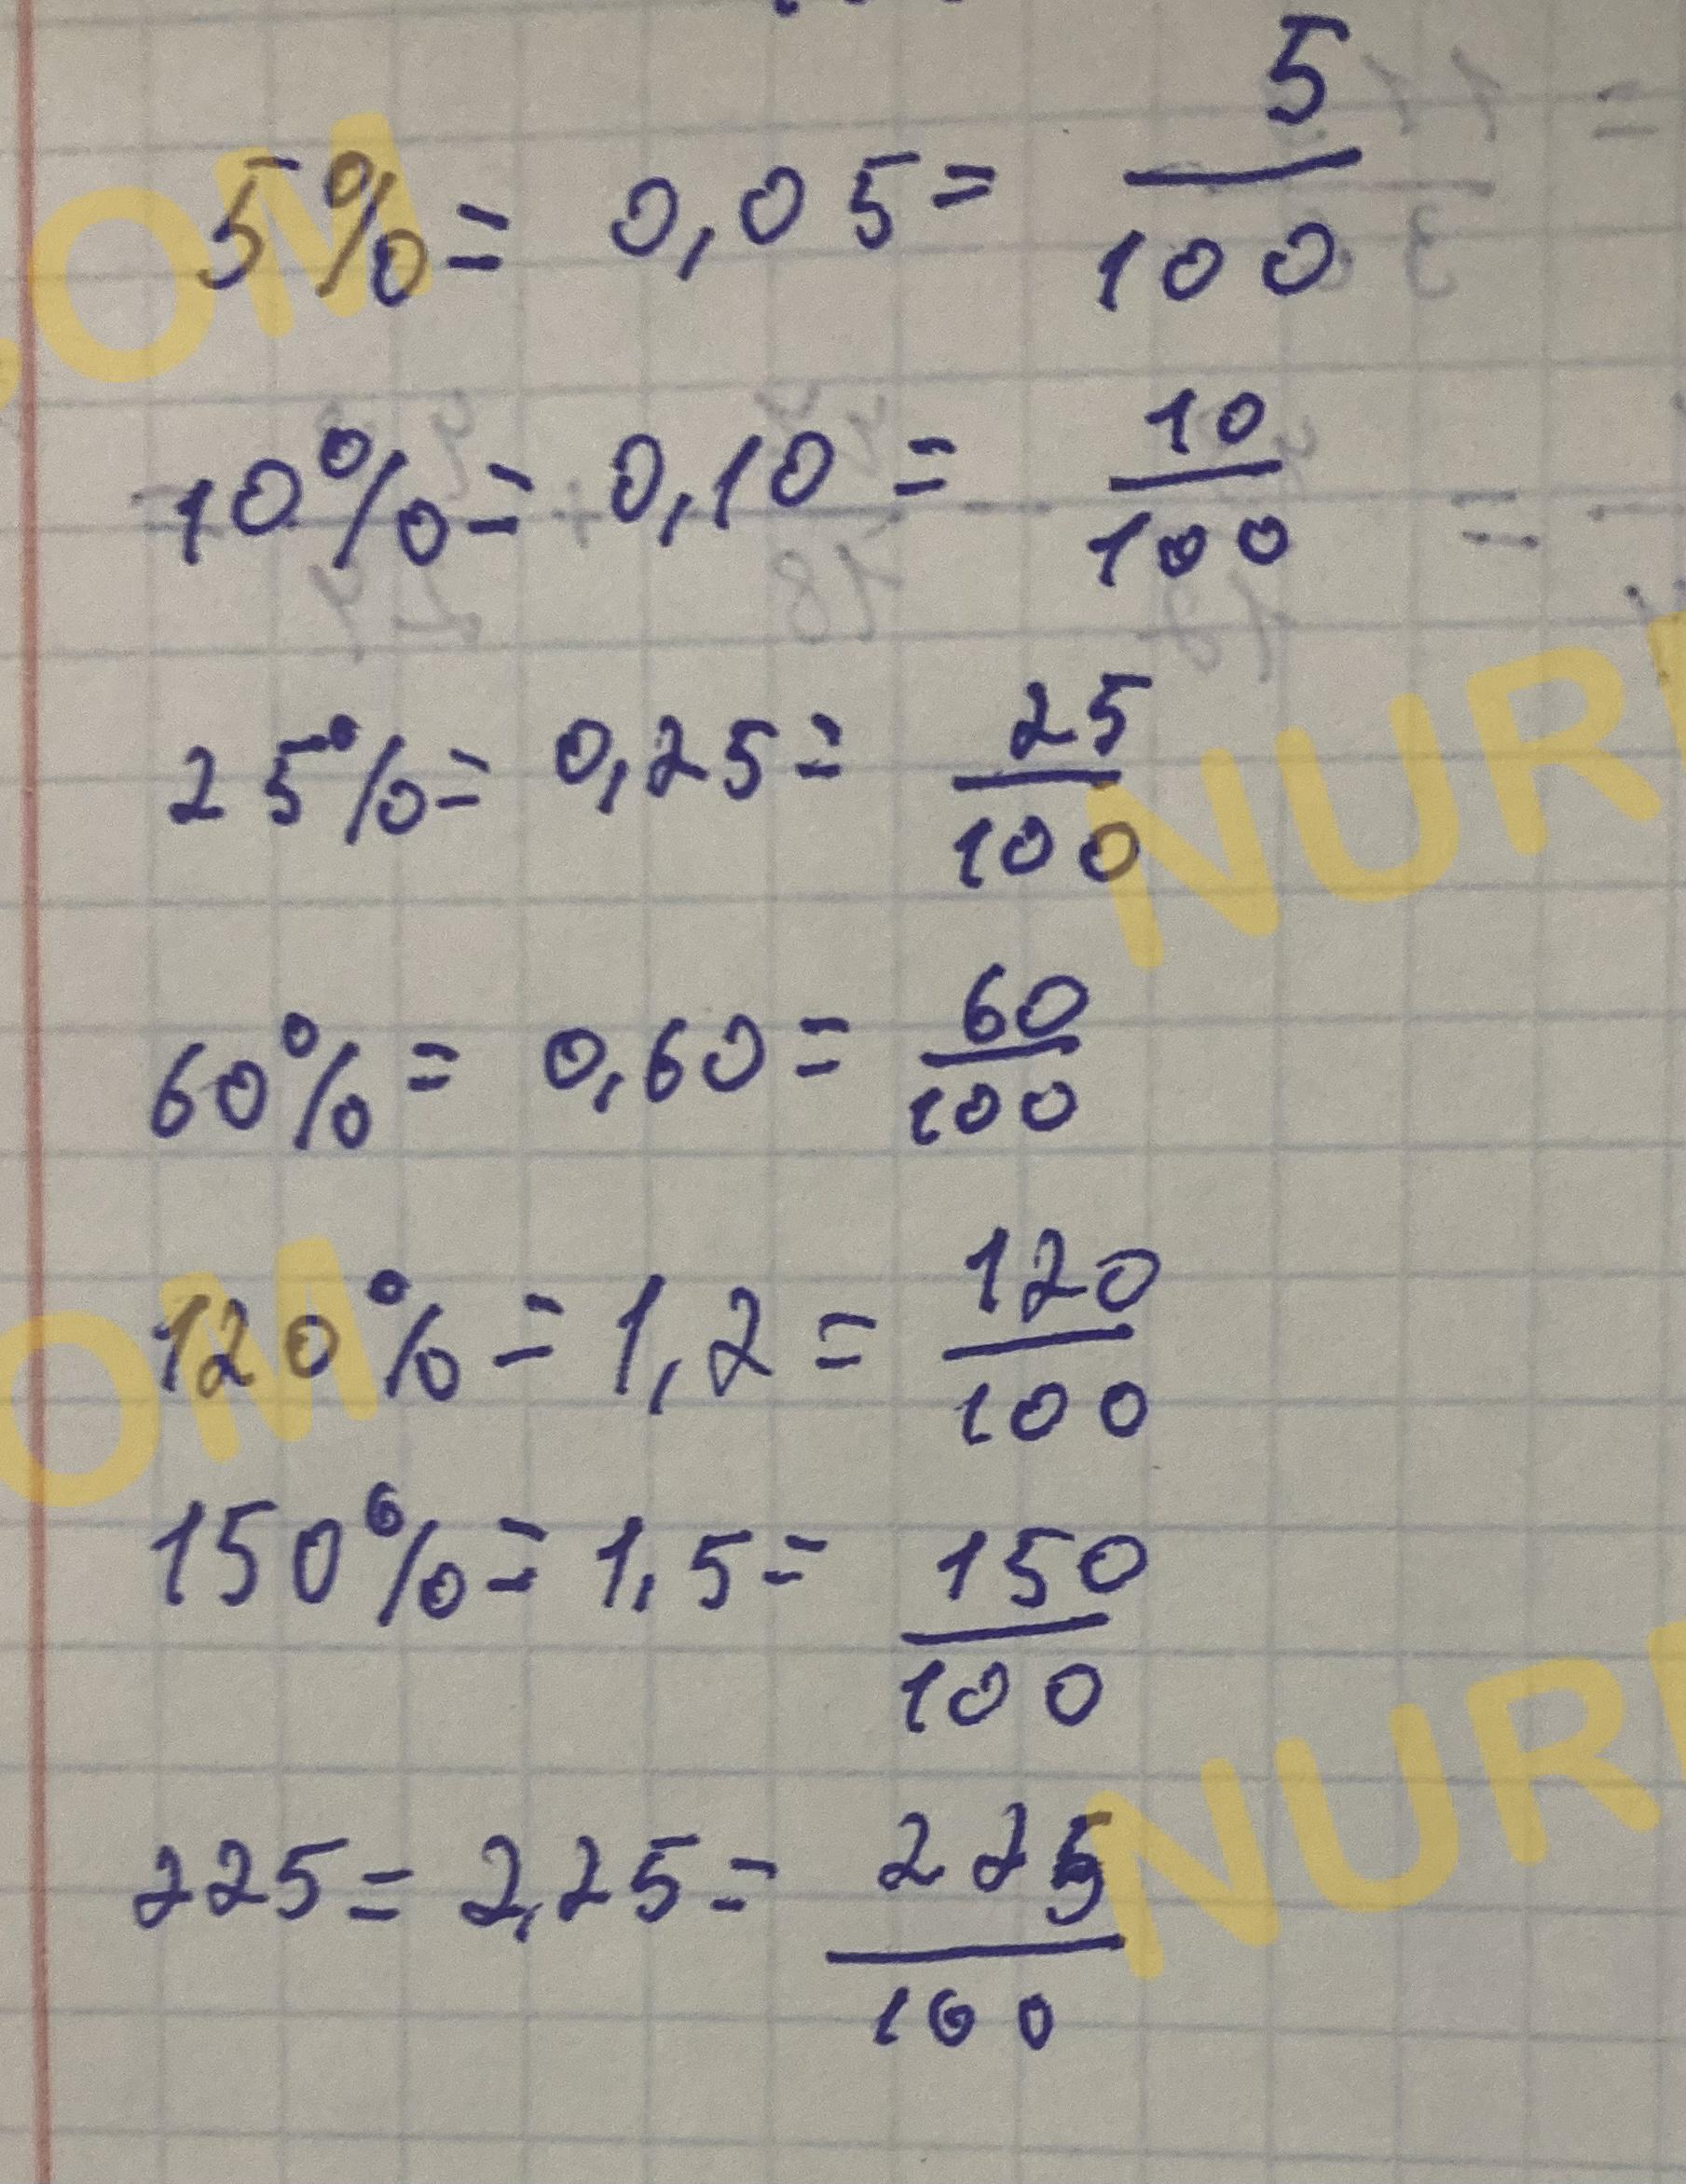 5% = 0,05 = 5/100
10% = 0,10 = 10/100
25% = 0,25 = 25/100
60% = 0,60 = 60/100
120% = 1,2 = 120/100
150% = 1,5 = 150/100
225 = 2,25 = 225/100